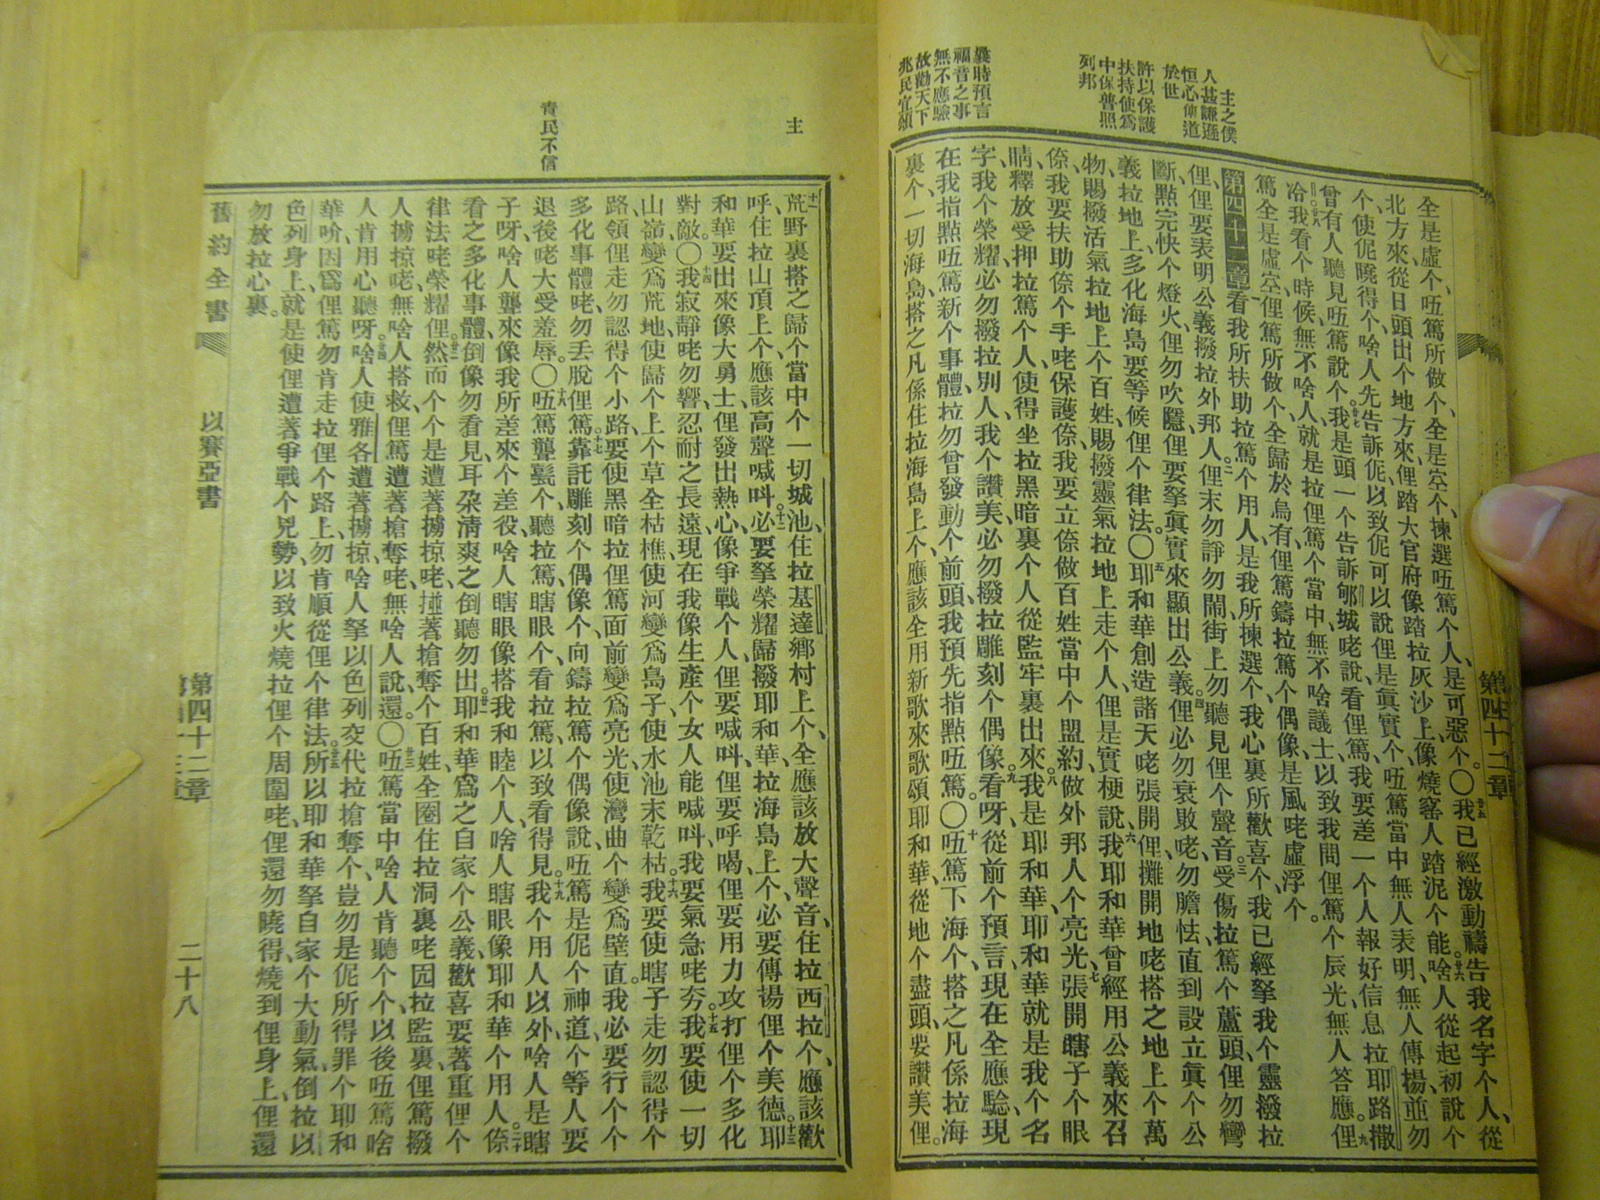 主之僕
人甚謙遜
恒心傳道
於世
許以保護
扶持使爲
中保普照
列邦
曩時預言
福音之事
無不應驗
故勸天下
兆民宜頌
第四十二章
全是虛个、㕶篤所做个、全是空个、揀選㕶篤个人、是可惡个。〇我已經激動禱告我名字个人、從
北方來、從日頭出个地方來、俚踏大官府像踏拉灰沙上、像燒窰人踏泥个能。啥人從起初說个
个、使伲曉得个、啥人先告訴伲、以致伲可以說俚是眞實个、㕶篤當中無人表明、無人傳揚、並勿
曾有人聽見㕶篤說个。我是頭一个告訴郇城咾說、看俚篤、我要差一个人報好信息拉耶路撒
冷。我看个時候、無不啥人、就是拉俚篤个當中、無不啥議士、以致我問俚篤个辰光、無人答應。俚
篤全是虛空、俚篤所做个、全歸於烏有、俚篤鑄拉篤个偶像、是風咾虛浮个。
第四十二章 看我所扶助拉篤个用人、是我所揀選个、我心裏所歡喜个、我已經拏我个靈撥拉
俚、俚要表明公義撥拉外邦人。俚末勿諍勿鬧、街上勿聽見俚个聲音。受傷拉篤个蘆頭、俚勿彎
斷、點完快个燈火、俚勿吹隱、俚要拏眞實來顯出公義。俚必勿衰敗咾勿膽怯、直到設立眞个公
義拉地上、多化海島要等候俚个律法。〇耶和華創造諸天咾張開俚、攤開地咾搭之地上个萬
物、賜撥活氣拉地上个百姓、賜撥靈氣拉地上走个人、俚是實梗說、我耶和華曾經用公義來召
倷、我要扶助倷个手咾保護倷、我要立倷做百姓當中个盟約、做外邦人个亮光、張開瞎子个眼
睛、釋放受押拉篤个人、使得坐拉黑暗裏个人從監牢裏出來。我是耶和華、耶和華就是我个名
字、我个榮耀必勿撥拉別人、我个讚美必勿撥拉雕刻个偶像。看呀、從前个預言、現在全應騐、現
在我指點㕶篤新个事體、拉勿曾發動个前頭、我預先指點㕶篤。〇㕶篤下海个、搭之凡係拉海
裏个、一切海島搭之凡係住拉海島上个、應該全用新歌來歌頌耶和華、從地个盡頭、要讚美俚。
主
責民不信
荒野裏搭之歸个當中个一切城池、住拉基達鄉村上个、全應該放大聲音、住拉西拉个、應該歡
呼、住拉山頂上个、應該高聲喊呌。必要拏榮耀歸撥耶和華、拉海島上个、必要傳揚俚个美德。耶
和華要出來像大勇士、俚發出熱心、像爭戰个人、俚要喊呌、俚要呼喝、俚要用力攻打俚个多化
對敵。〇我寂靜咾勿響、忍耐之長遠、現在我像生產个女人能喊呌、我要氣急咾夯。我要使一切
山嶺變爲荒地、使歸个上个草全枯樵、使河變爲島子、使水池末乾枯。我要使瞎子走勿認得个
路、領俚走勿認得个小路、要使黑暗拉俚篤面前變爲亮光、使灣曲个變爲壁直。我必要行个个
多化事體咾、勿丟脫俚篤。靠託雕刻个偶像个、向鑄拉篤个偶像說、㕶篤是伲个神道个等人、要
退後咾大受羞辱。〇㕶篤聾髼个、聽拉篤、瞎眼个看拉篤、以致看得見。我个用人以外、啥人是瞎
子呀、啥人聾來像我所差來个差役、啥人瞎眼像搭我和睦个人、啥人瞎眼像耶和華个用人。倷
看之多化事體、倒像勿看見、耳朶淸爽之倒聽勿出。耶和華爲之自家个公義、歡喜要著重俚个
律法咾榮耀俚。然而个个是遭著擄掠咾、搕著搶奪个百姓、全圈住拉洞裏咾囥拉監裏、俚篤撥
人擄掠咾、無啥人搭救、俚篤遭著搶奪咾、無啥人說還。〇㕶篤當中啥人肯聽个个、以後㕶篤啥
人肯用心聽呀。啥人使雅各遭著擄掠、啥人拏以色列交代拉搶奪个、豈勿是伲所得罪个耶和
華吤、因爲俚篤勿肯走拉俚个路上、勿肯順從俚个律法。所以耶和華拏自家个大動氣、倒拉以
色列身上、就是使俚遭著爭戰个兇勢、以致火燒拉俚个周圍咾俚還勿曉得、燒到俚身上、俚還
勿放拉心裏。
舊約全書 以賽亞書 第四十二章 二十八